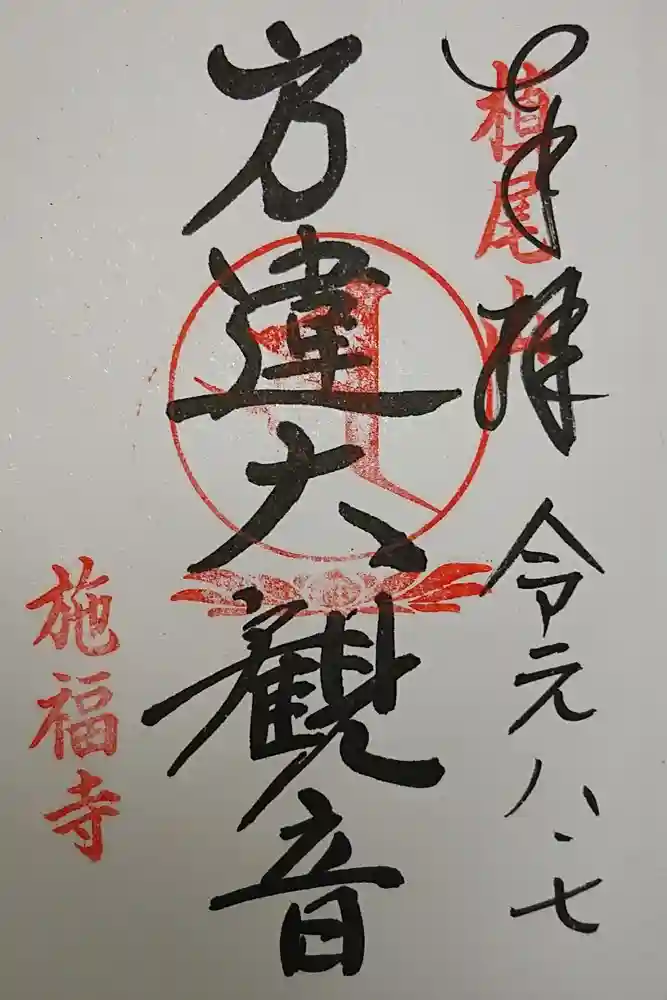 奉拝 令元八・七
槙尾山
方違大観音
施福寺